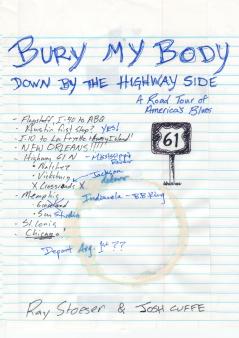 BURY MY BODY
DOWN BY THE HIGHWAY SIDE
A Road Tour of
America's Blues
- Flagstaff, I-40 to ABQ
- Austin first stop? YES!
- I-10 to Lafayette
- NEW ORLEANS!!!!
- Highway 61 N - Mississippi
61
• Natchez
• Vicksburg Jackson
X Crossroads X
- Memphis Indianola - B.B. King
• Graceland
• Sun Studio
- St. Louis
- Chicago!
Depart Aug. 1st ??
Ray Stoeser & JOSH CUFFE